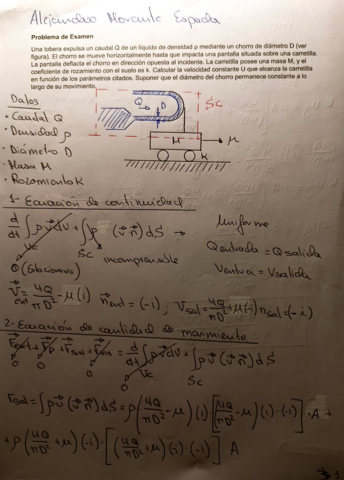 Alejandro Morante Espada
Problema de Examen
Una tobera expulsa un caudal Q de un líquido de densidad ρ mediante un chorro de diámetro D (ver
figura). El chorro se mueve horizontalmente hasta que impacta una pantalla situada sobre una carretilla.
La pantalla deflacta el chorro en dirección opuesta al incidente. La carretilla posee una masa M, y el
coeficiente de rozamiento con el suelo es k. Calcular la velocidad constante U que alcanza la carretilla
en función de los parámetros citados. Suponer que el diámetro del chorro permanece constante a lo
largo de su movimiento.
Datos
• Caudal Q
• Densidad ρ
• Diámetro D
• Masa M
• Rozamiento K
Q D SC
M μ
K
1- Ecuación de continuidad
d/dt ∫ ρ v dv + ∫ ρ (v⃗ n⃗) dS →
VC SC
0 (Estacionario) incomprensible
Uniforme
Q entrada = Q salida
V entra = V salida
V⃗ent = 4Q/πD² - μ (i) n⃗ent = (-1), V⃗sal = 4Q/πD² + μ (-i) n sal = (-i)
2- Ecuación de cantidad de movimiento
F⃗ext + F⃗p + F⃗sol + F⃗mas = d/dt ∫ ρ v⃗ dv + ∫ ρ v⃗ (v⃗ n⃗) dS
0 0 0 0 VC SC
Fsol = ∫ ρ v⃗ (v⃗ n⃗) dS = ρ (4Q/πD² - μ) (i) [(4Q/πD² - μ) (i) · (-1)] · A +
+ ρ (4Q/πD² + μ) (-i) · [(4Q/πD² + μ) (-i) · (-i)] · A